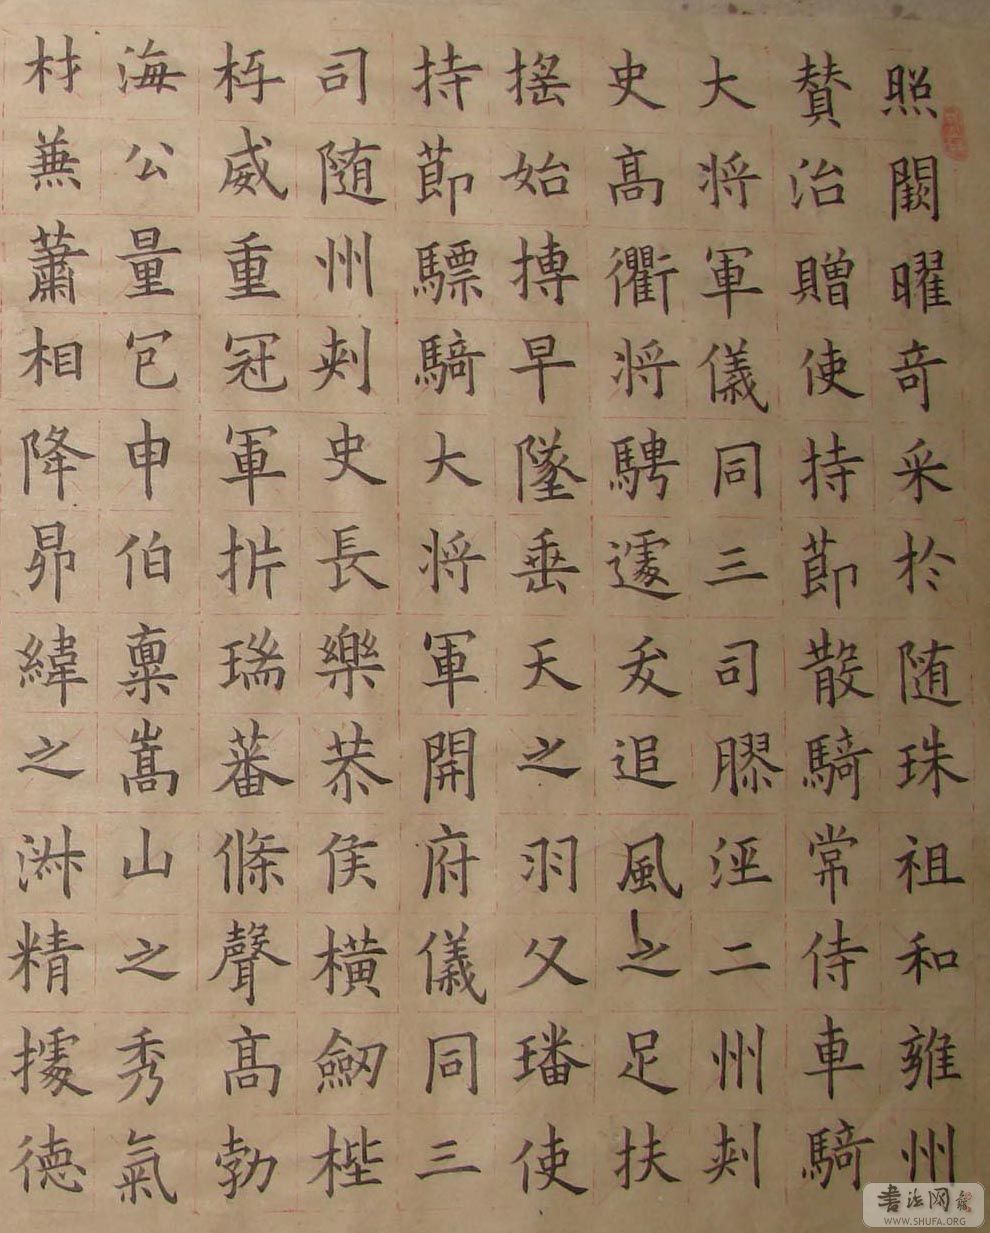 照闕曜竒采於随珠祖和雍州
賛治贈使持莭散騎常侍車騎
大将軍儀同三司膠涇二州刾
史髙衢将騁遽夭追風之足扶
搖始摶早墜垂天之羽父璠使
持莭驃騎大将軍開府儀同三
司随州刾史長樂恭侯横劒梐
枑威重冠軍析瑞蕃條聲髙勃
海公量包申伯禀嵩山之秀氣
材蕪蕭相降昴緯之淑精據德
書法网
WWW.SHUFA.ORG